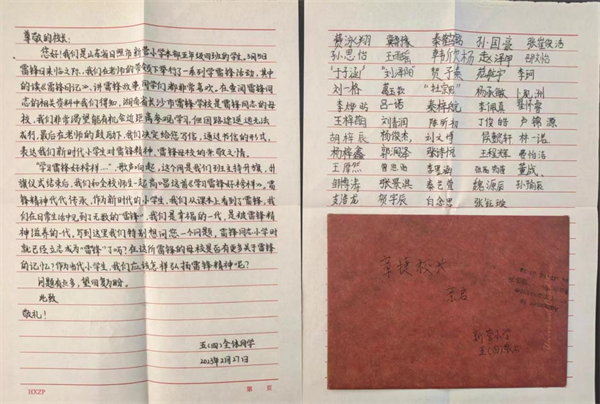 尊敬的校长:
您好!我们是山东省日照市新营小学本部五年级四班的学生。3月5日
雷锋日来临之际,我们在老师的带领下举行了一系列学雷锋活动,其中
的读《雷锋日记》、讲雷锋故事,同学们都非常喜欢。在查阅雷锋同
志的相关资料中我们得知,湖南省长沙市雷锋学校是雷锋同志的母
校,我们非常渴望能有机会近距离参观学习,但因路途遥远无法
成行。最后在老师的鼓励下,我们决定给您写信,通过书信的形式,
表达我们新时代小学生对雷锋精神、雷锋母校的崇敬之情。
"学习雷锋好榜样……"歌声响起,这个周是我们班主持升旗,升
旗仪式结束后,我们和全校师生一起高唱这首《学习雷锋好榜样》。雷
锋精神代代传承,作为新时代的小学生,我们从课本上看到了雷锋,我
们在日常生活中见到了无数的"雷锋",我们是幸福的一代,是被雷锋精
神滋养的一代。写到这里我们特别想问您一个问题,雷锋同志小学时
就已经立志成为"雷锋"了吗?在这所雷锋的母校是否有更多关于雷锋
的记忆?作为当代小学生,我们应该怎样弘扬雷锋精神呢?
问题有点多,望回复为盼。
此致
敬礼!
五(四)全体同学
2023年2月27日
HXZP 第 页
费泳翔 秦梓宸 孙国豪
孙思怡 王雨菲 韩欣杨 赵泽坤
于子涵 刘泽阳 贺子英 李轲
刘一格 杜宜阳 杨承融
李烨 吕一诺 秦梓航 李慎真
王梓翔 刘喜润 陈昕初 丁俊皓 卢锦源
胡梓辰 杨俊杰 刘文博 侯懿轩 林一诺
杨梓鑫 郭雨泽 张泽恺 王程程 费怡洁
王厚然 曹思如 董威
张景淇 秦艺萱 魏源辰 孙瑜辰
支浩龙 贺宇辰 白余忠 张钰璇
章捷校长
亲启
新营小学
五(四)